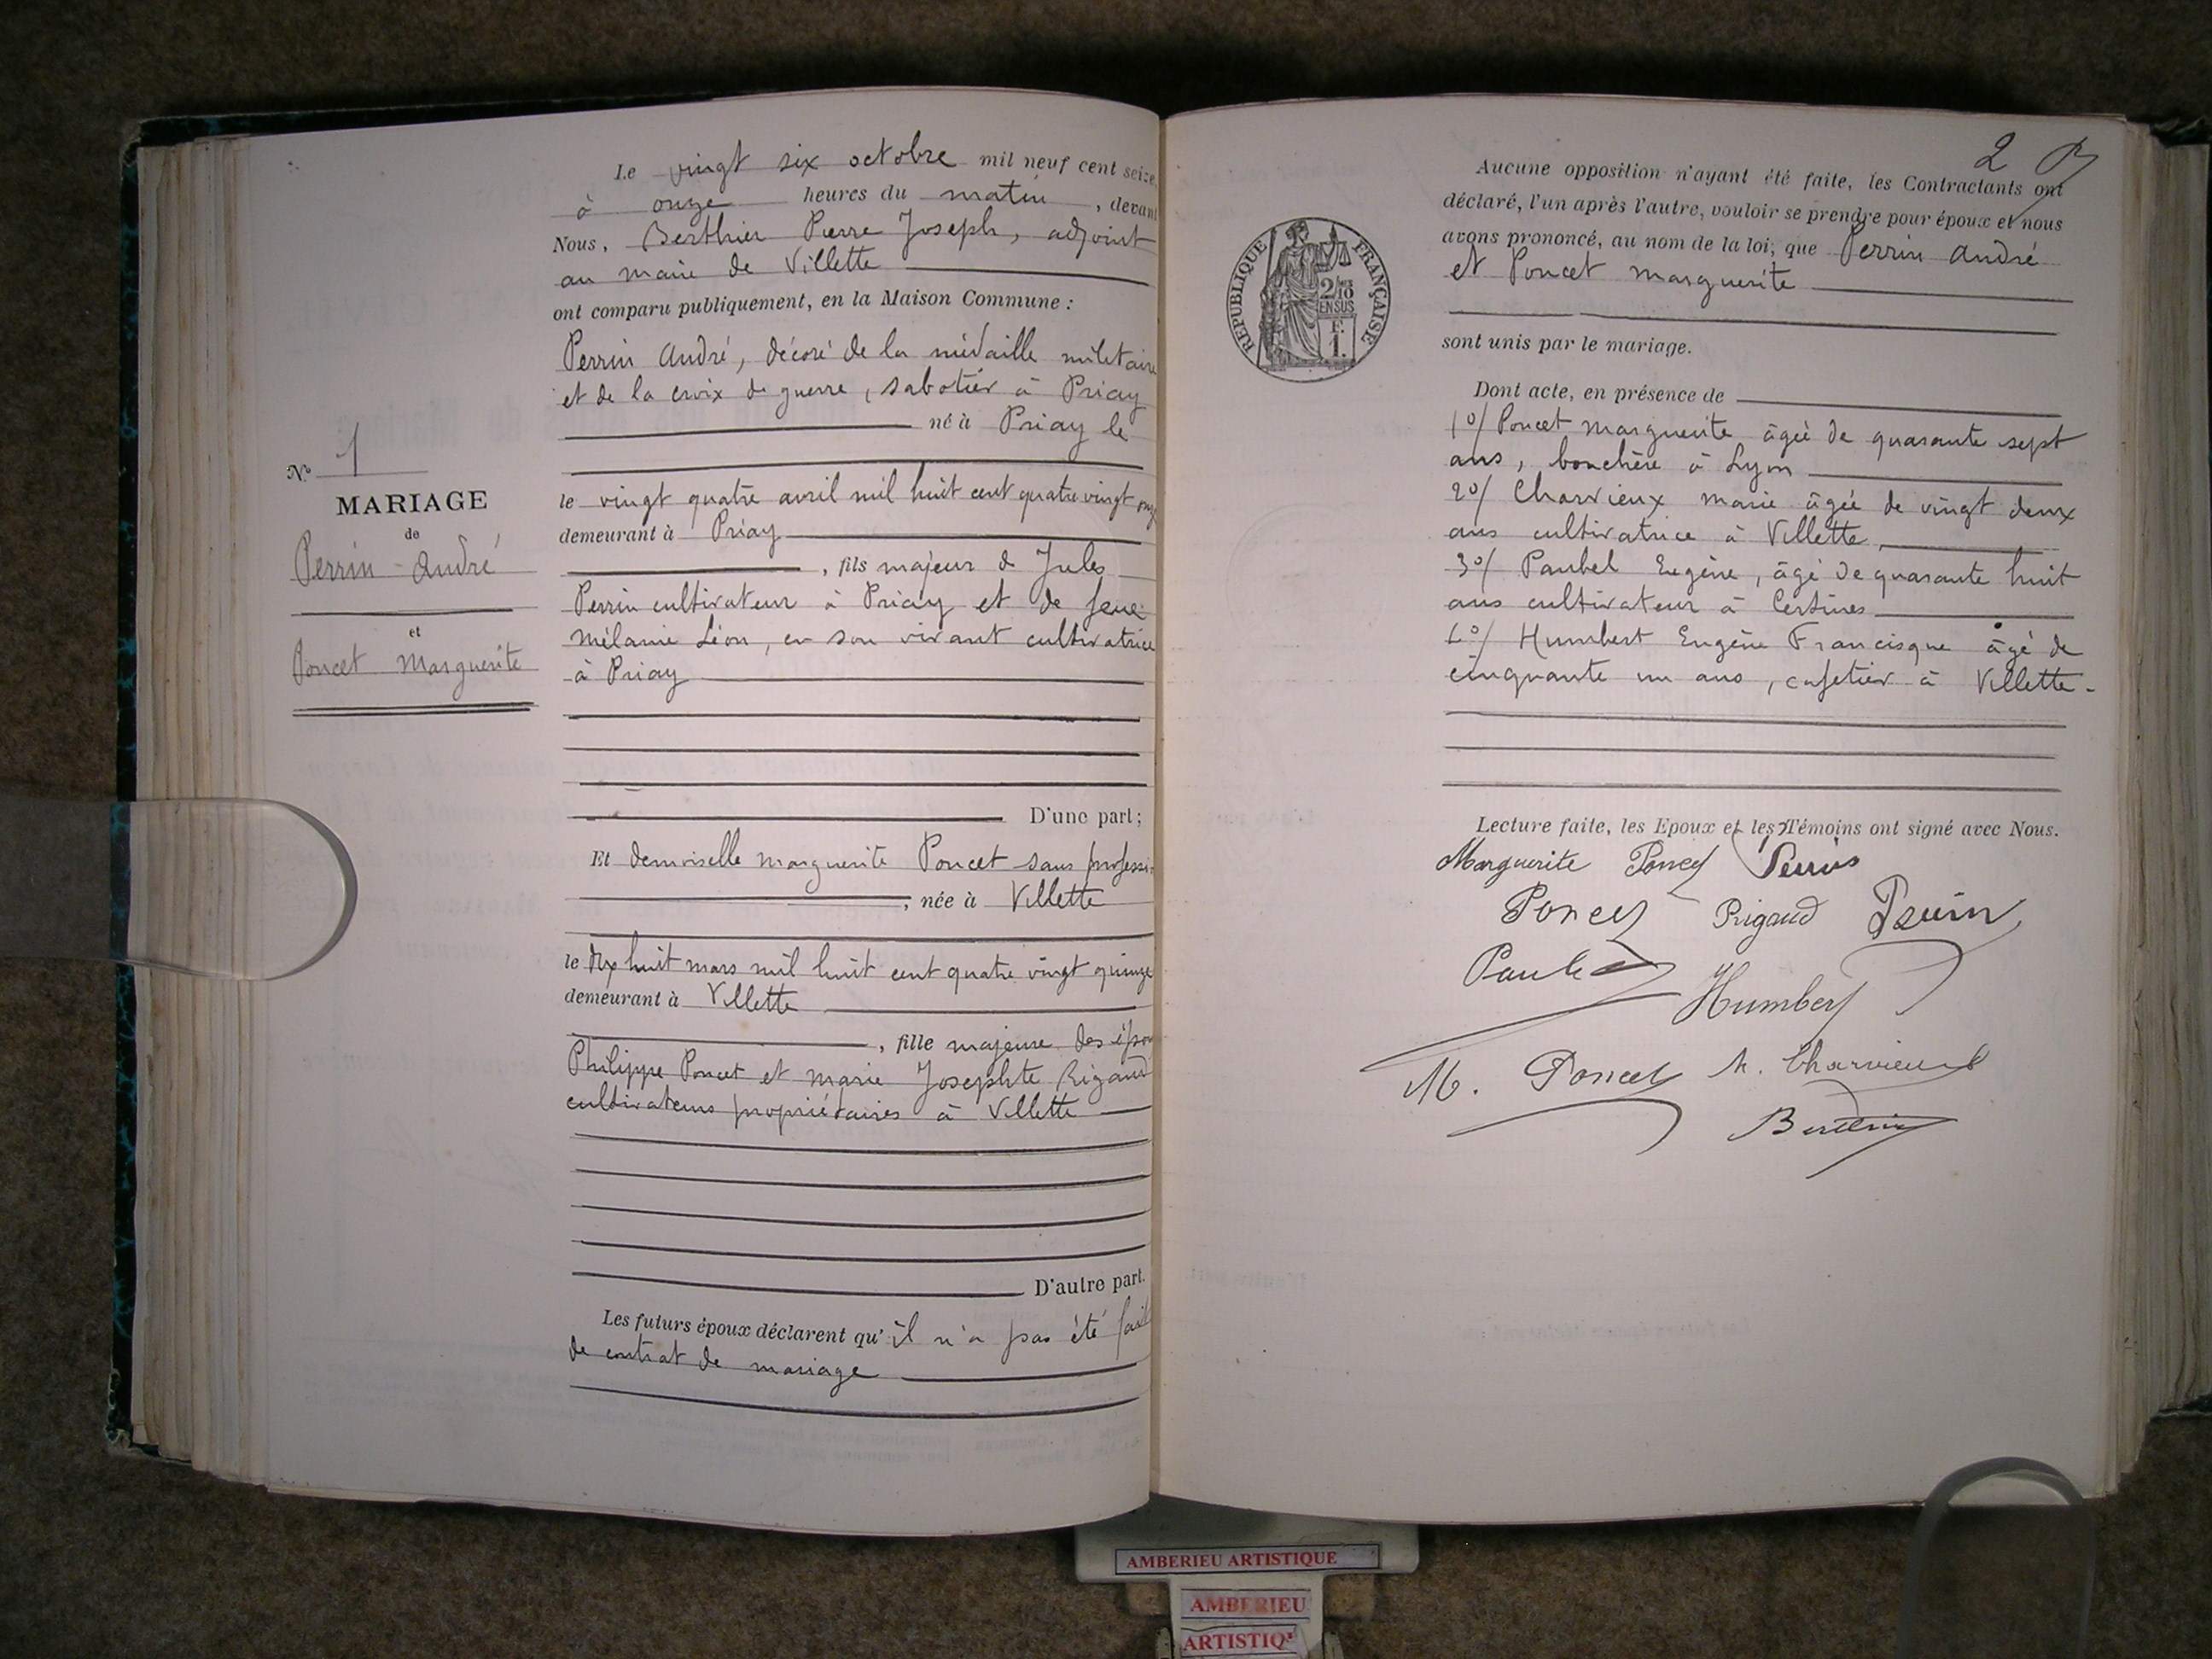 Le vingt six octobre mil neuf cent seize,
à onze heures du matin, devant
Nous, Berthier Pierre Joseph, adjoint
au maire de Villette
ont comparu publiquement, en la Maison Commune :
Perrin André, décoré de la médaille militaire
et de la croix de guerre, sabotier à Priay
né à Priay le
le vingt quatre avril mil huit cent quatre vingt onze
demeurant à Priay
, fils majeur de Jules
Perrin cultivateur à Priay et de feue
Mélanie Léon, en son vivant cultivatrice
à Priay
D'une part ;
Et demoiselle Marguerite Poncet sans professi
, née à Villette
le dix huit mars mil huit cent quatre vingt quinze
demeurant à Villette
, fille majeure des épou
Philippe Poncet et Marie Josephte Rigaud
cultivateurs propriétaires à Villette
D'autre part.
Les futurs époux déclarent qu'il n'a pas été fait
de contrat de mariage
N° 1
MARIAGE
de
Perrin André
et
Poncet Marguerite
2
Aucune opposition n'ayant été faite, les Contractants ont
déclaré, l'un après l'autre, vouloir se prendre pour époux et nous
avons prononcé, au nom de la loi, que Perrin André
et Poncet Marguerite
sont unis par le mariage.
Dont acte, en présence de
1°/ Poncet Marguerite âgée de quarante sept
ans, bouchère à Lyon
2°/ Charvieux Marie âgée de vingt deux
ans cultivatrice à Villette,
3°/ Paubel Eugène, âgé de quarante huit
ans cultivateur à Certines
4°/ Humbert Eugène Francisque âgé de
cinquante un ans, cafetier à Villette.
Lecture faite, les Epoux et les Témoins ont signé avec Nous.
Marguerite Poncet Perrin
Poncet Rigaud Perrin
Paubel
Humbert
M. Poncet M. Charvieux
Berthier
RÉPUBLIQUE FRANÇAISE
2/10
EN SUS
F.
1.
AMBERIEU ARTISTIQUE
AMBERIEU
ARTISTIQ